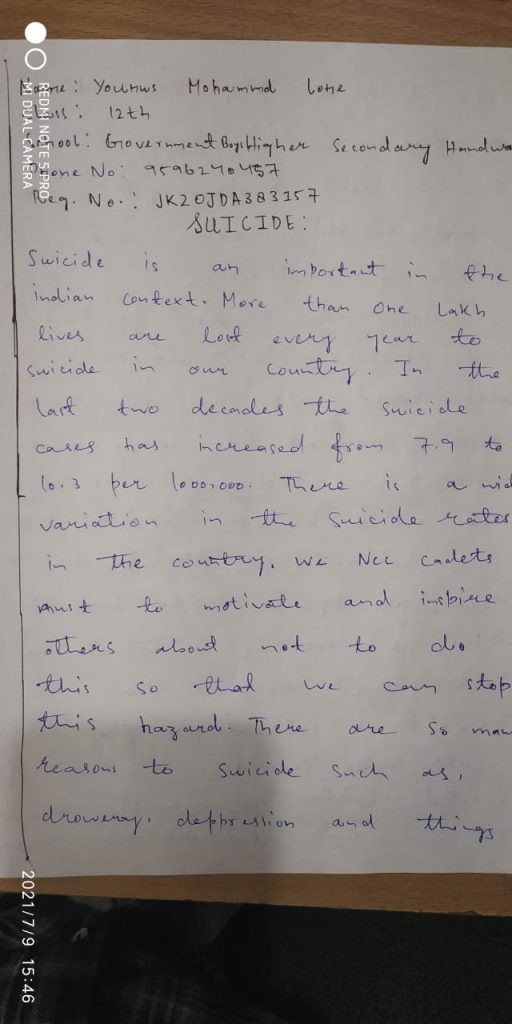 Name: Younus Mohammad lone
Class: 12th
School: Government Boys Higher Secondary Handwa
Phone No: 9596240457
Reg. No.: JK20JDA383157
SUICIDE:
Suicide is an important in the
indian context. More than one lakh
lives are lost every year to
suicide in our country. In the
last two decades the suicide
cases has increased from 7.9 to
10.3 per 1000,000. There is a wid
variation in the suicide rates
in the country. We Ncc cadets
must to motivate and inspire
others about not to do
this so that we can stop
this hazard. There are so man
reasons to suicide such as,
drowery, deppression and things
REDMI NOTE 5 PRO
MI DUAL CAMERA
2021/7/9 15:46